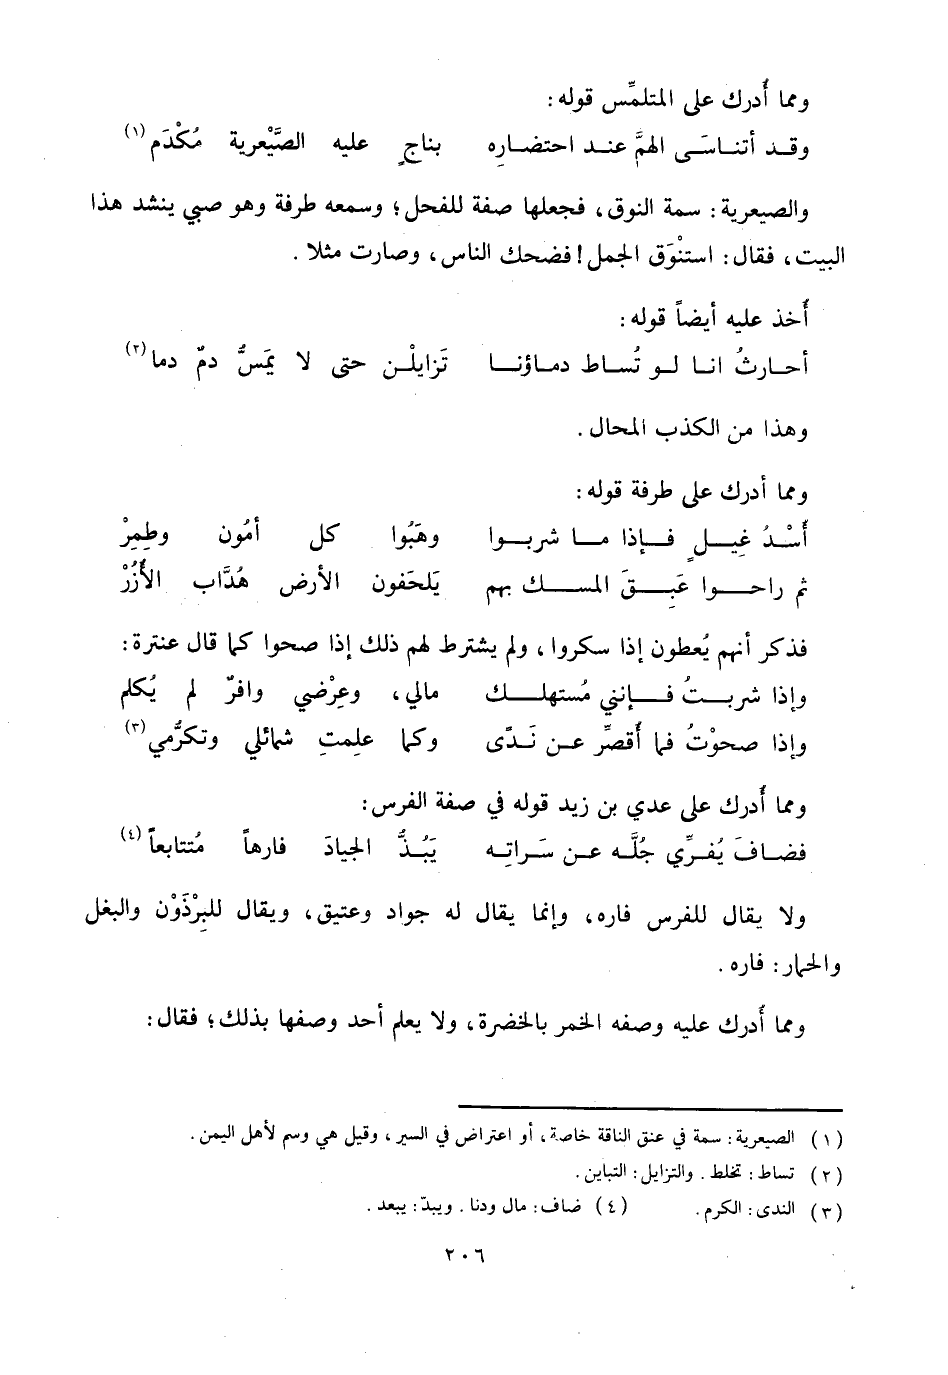 ومما أُدرك على المتلمِّس قوله:
وقد أتناسَى الهمَّ عند احتضاره بناجٍ عليه الصَّيْعرية مُكْدَم (١)
والصيعرية: سمة النوق، فجعلها صفة للفحل؛ وسمعه طرفة وهو صبي ينشد هذا
البيت، فقال: استنْوَق الجمل! فضحك الناس، وصارت مثلا.
أُخذ عليه أيضاً قوله:
أحارثُ انا لو تُساط دماؤنا تَزايلْن حتى لا يمَسُّ دمٌ دما (٢)
وهذا من الكذب المحال.
ومما أدرك على طرفة قوله:
أُسْدُ غِيلٍ فإذا ما شربوا وهَبُوا كل أمُون وطِمِرْ
ثم راحوا عَبِقَ المسك بهم يَلحَفون الأرض هُدَّاب الأُزُرْ
فذكر أنهم يُعطون إذا سكروا، ولم يشترط لهم ذلك إذا صحوا كما قال عنترة:
وإذا شربتُ فإنني مُستهلك مالي، وعِرْضي وافرٌ لم يُكلم
وإذا صحوْتُ فما أُقصِّر عن نَدًى وكما علِمتِ شمائلي وتكرُّمي (٣)
ومما أُدرك على عدي بن زيد قوله في صفة الفرس:
فضافَ يُفرِّي جُلَّه عن سَراتِه يَبُذُّ الجيادَ فارهاً مُتتابعاً (٤)
ولا يقال للفرس فاره، وإنما يقال له جواد وعتيق، ويقال للبِرْذَوْن والبغل
والحمار: فاره.
ومما أُدرك عليه وصفه الخمر بالخضرة، ولا يعلم أحد وصفها بذلك؛ فقال:
(١) الصيعرية: سمة في عنق الناقة خاصة، أو اعتراض في السير، وقيل هي وسم لأهل اليمن.
(٢) تساط: تخلط. والتزايل: التباين.
(٣) الندى: الكرم. (٤) ضاف: مال ودنا. ويبذّ: يبعد.
٢٠٦